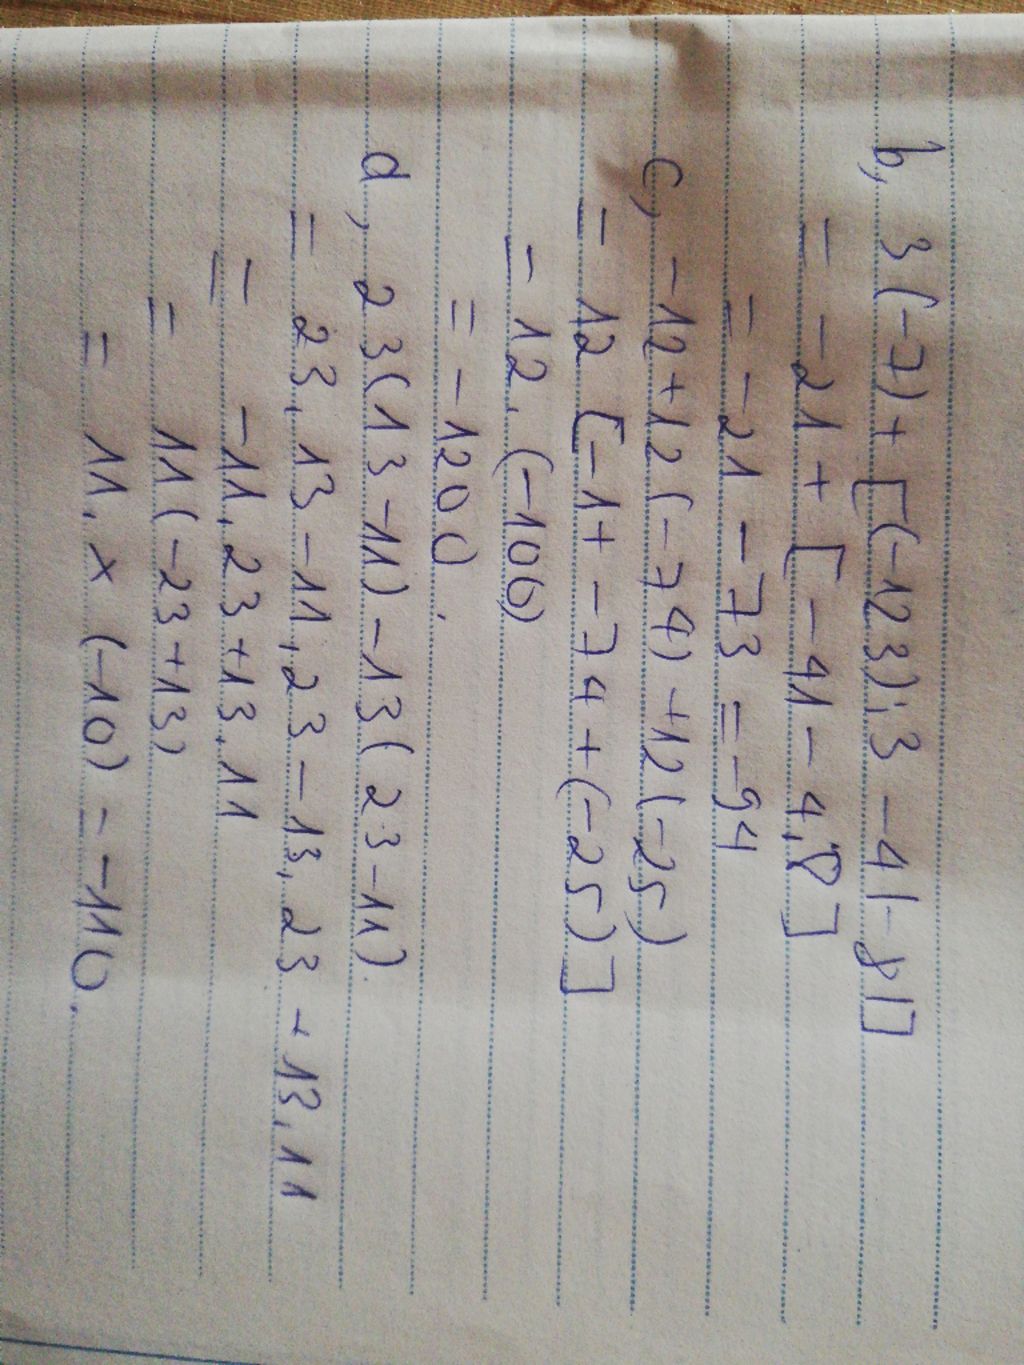 b, 3(-7)+[(-123):3 -4|-8|]
= -21 + [-41 - 4.8]
= -21 - 73 = -94
c, -12+12(-74)+12(-25)
= 12 [-1+ -74 +(-25)]
= 12. (-100)
= -1200.
d, 23(13-11)-13(23-11).
= 23.13-11.23-13.23+13.11
= -11.23+13.11
= 11(-23+13)
= 11. x (-10) = -110.